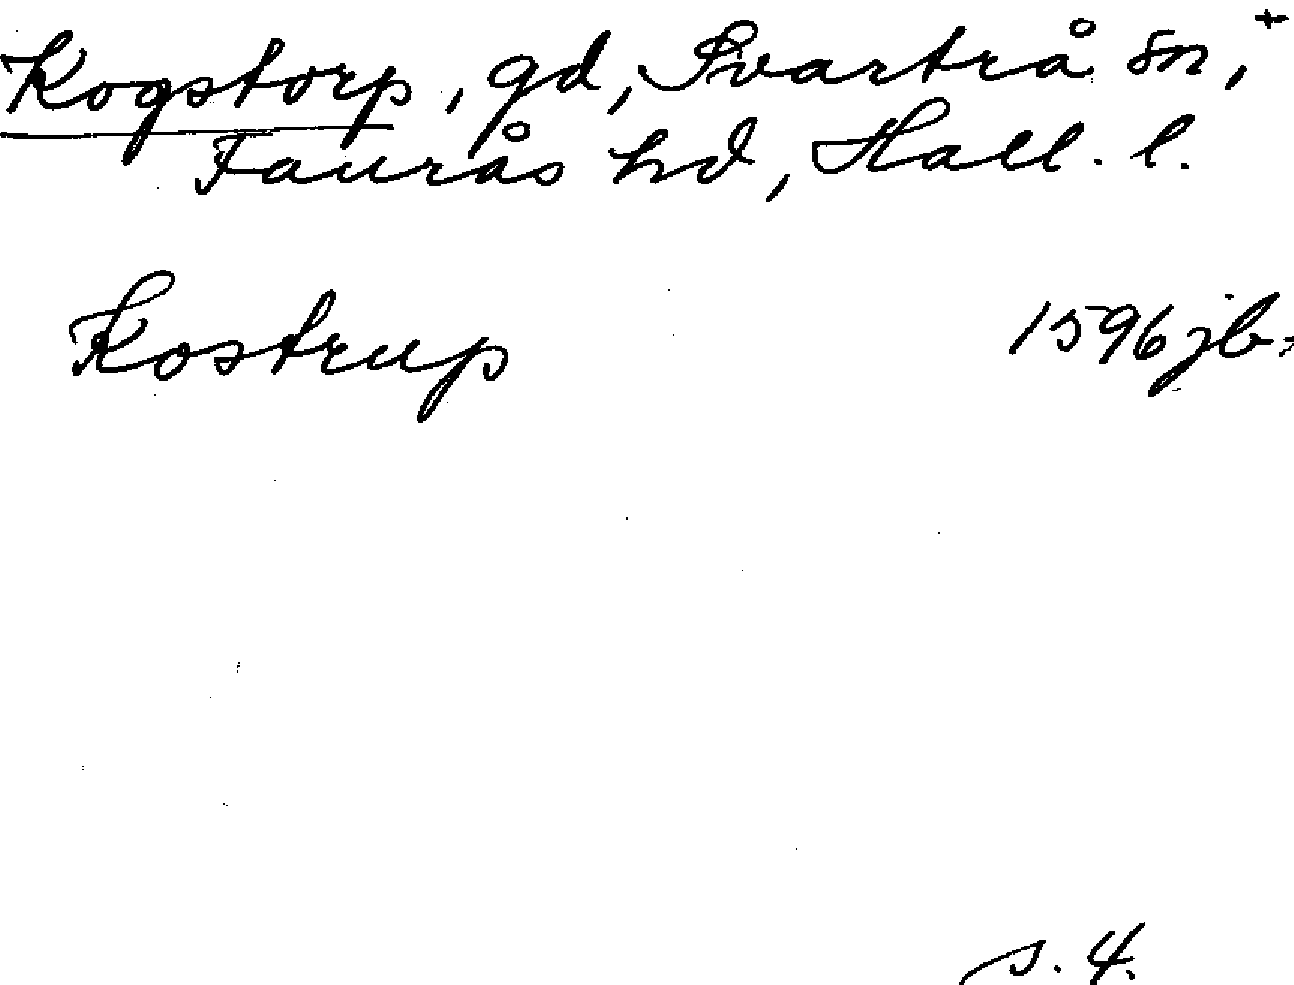 Kogstorp, gd, Svartrå sn, +
Faurås hd, Hall. l.
Kostrup 1596 jb.
s. 4.